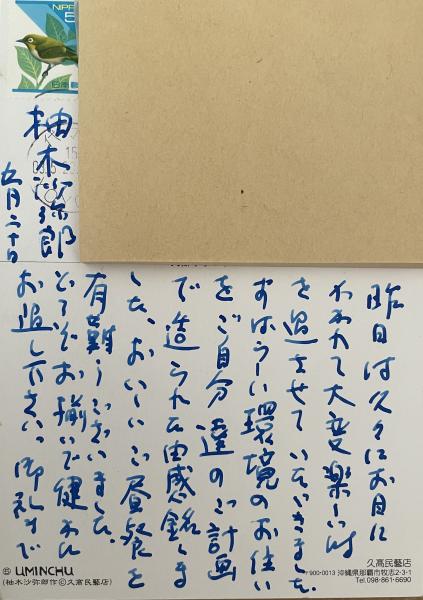 NIPP
5
昨日は久々にお目に
かかれて大変楽しい時
を過させていただきました。
すばらしい環境のお住い
をご自分達のご計画
で造られた由感銘しま
した、おいしいご昼餐を
有難うございました。
どうぞお揃いで健かに
お過し下さい。御礼まで
五月二十日
柚木沙弥郎
UMINCHU
(柚木沙弥郎作©久髙民藝店)
久髙民藝店
〒900-0013 沖縄県那覇市牧志2-3-1
Tel.098-861-6690